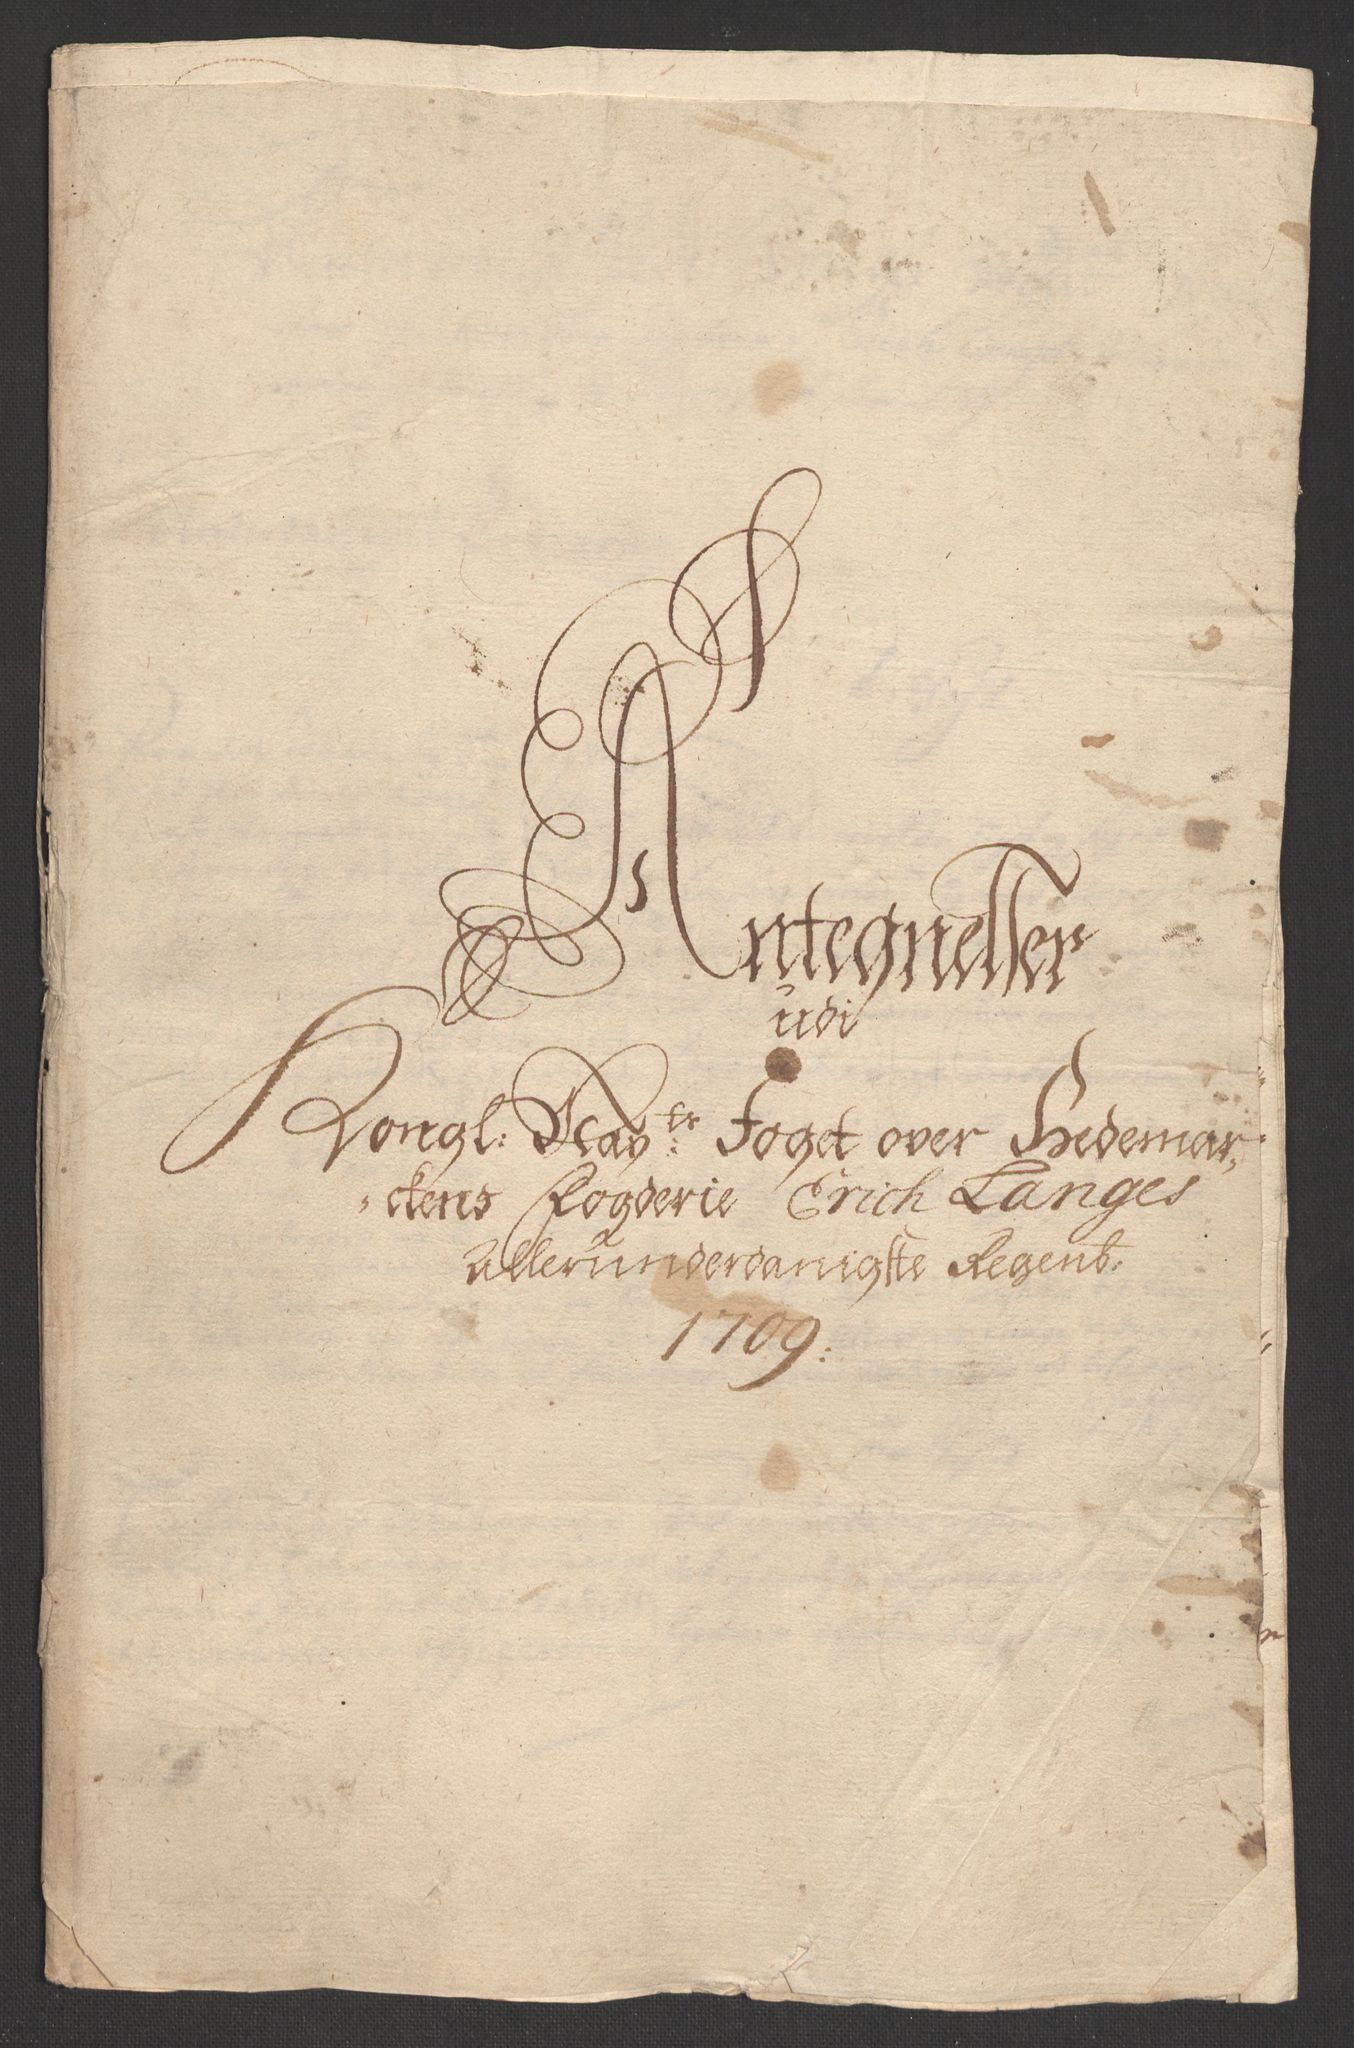 Antegnelser
udi
Kongl: May:ts Foget over Hedemar,
,ckens Fogderie Erich Langes
Allerunderdanigste Regensb:
1709: